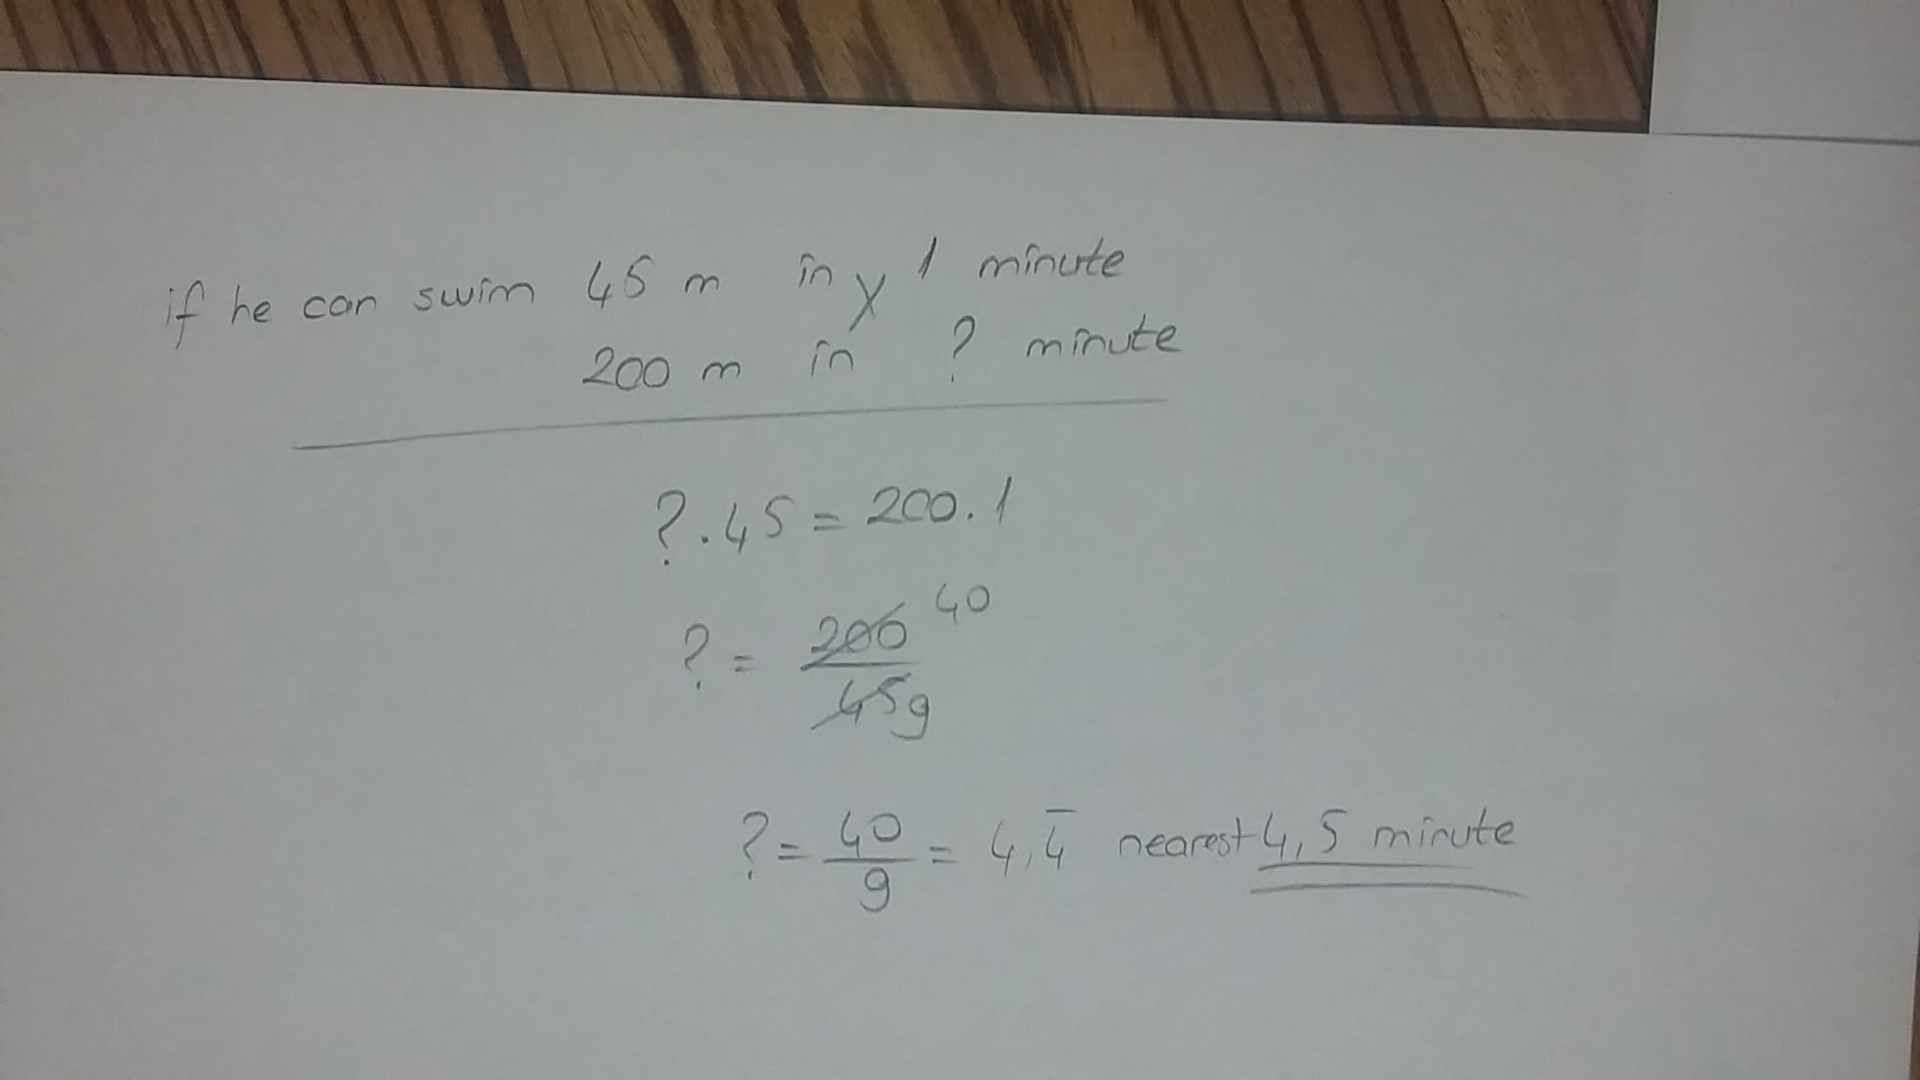 if he can swim 45 m in 1 minute
200 m in ? minute
? . 45 = 200 . 1
? = 200 40
45 9
? = 40/9 = 4,4̅ nearest 4,5 minute